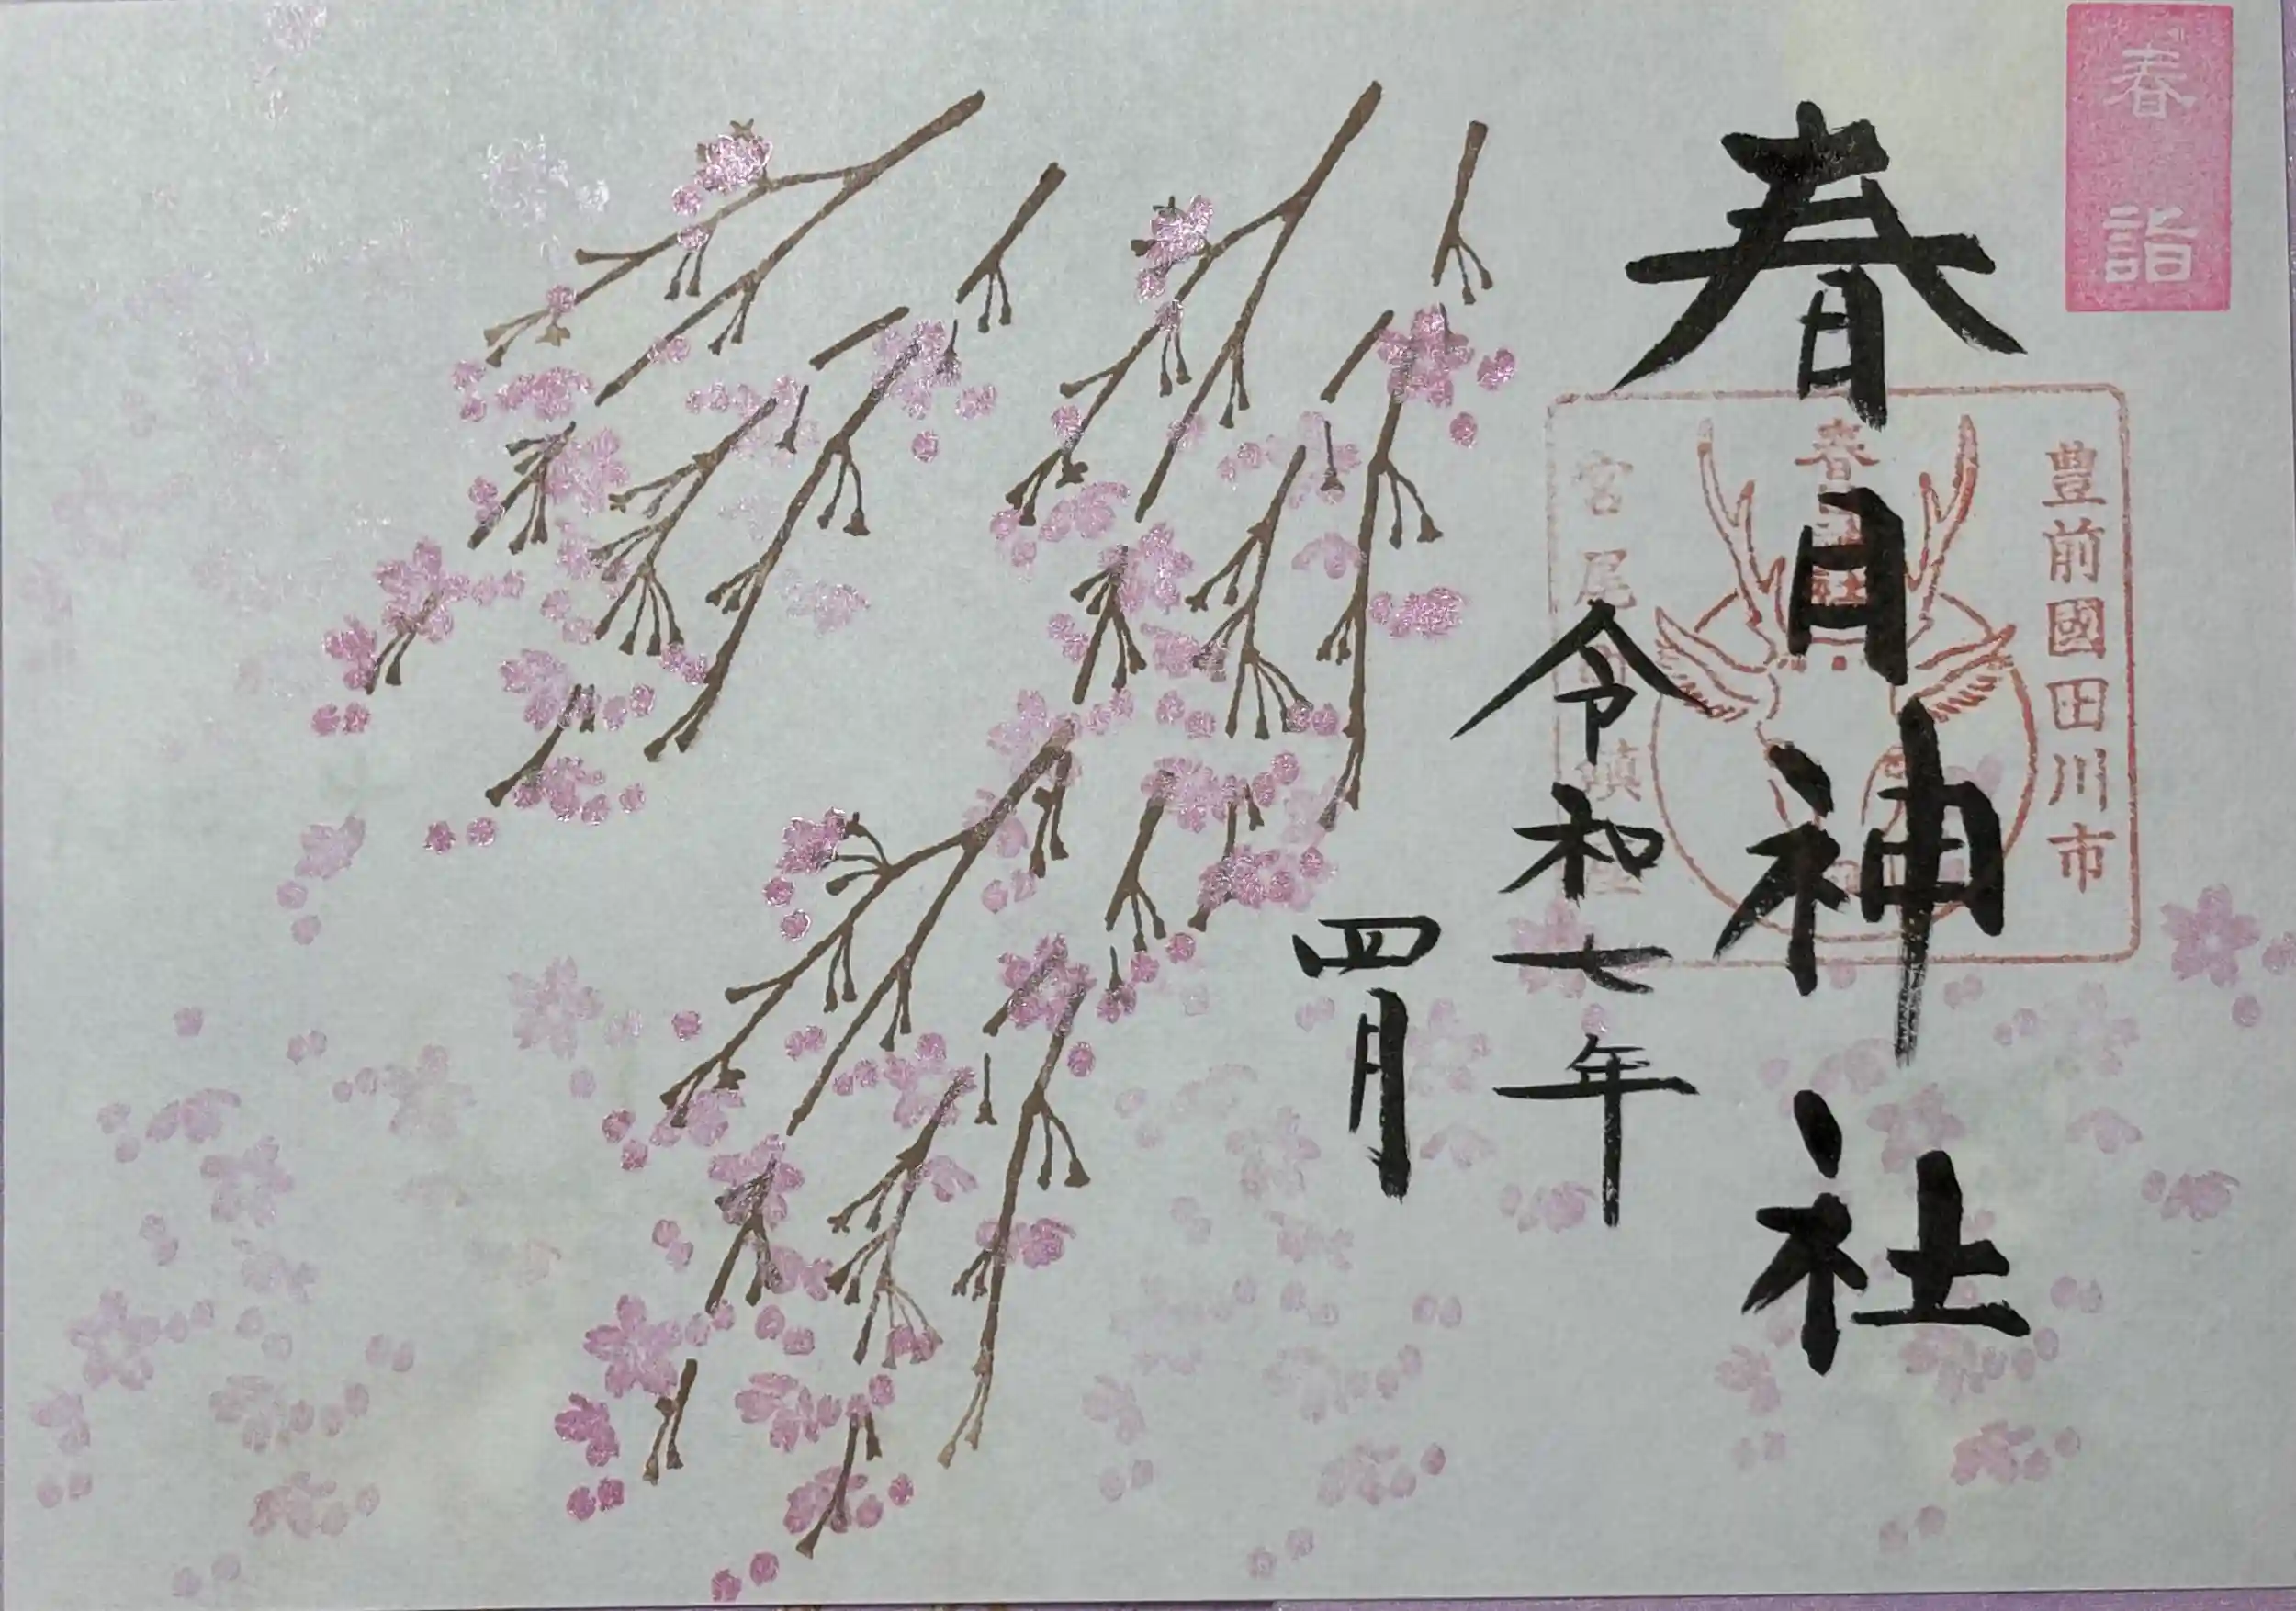 春詣
春日神社
豊前國田川市
春
宮尾
鎮
令和七年
四月